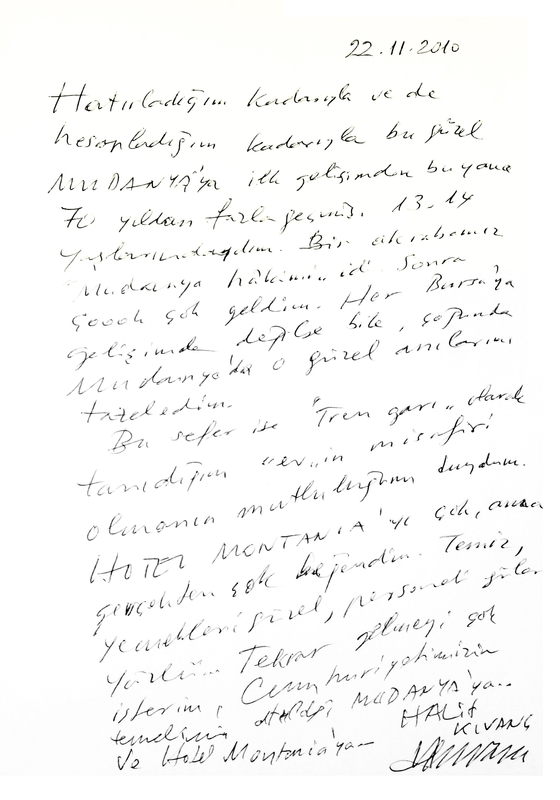 22.11.2010
Hatırladığım kadarıyla ve de
hesapladığım kadarıyla bu güzel
MUDANYA'ya ilk gelişimden bu yana
70 yıldan fazla geçmiş. 13-14
yaşlarındaydım. Bir akrabamız
"Mudanya hâkimi" idi. Sonra
çoook çok geldim. Her Bursa'ya
gelişimde değilse bile, çoğunda
Mudanya'da o güzel anılarımı
tazeledim.
Bu sefer ise "Tren garı" olarak
tanıdığım "ev"in misafiri
olmanın mutluluğunu duydum.
HOTEL MONTANIA'yı çok, ama
gerçekten çok beğendim. Temiz,
yemekleri güzel, personeli güler
yüzlü... Tekrar gelmeyi çok
isterim, Cumhuriyetimizin
temelinin atıldığı MUDANYA'ya...
ve Hotel Montania'ya—
HALİT
KIVANÇ